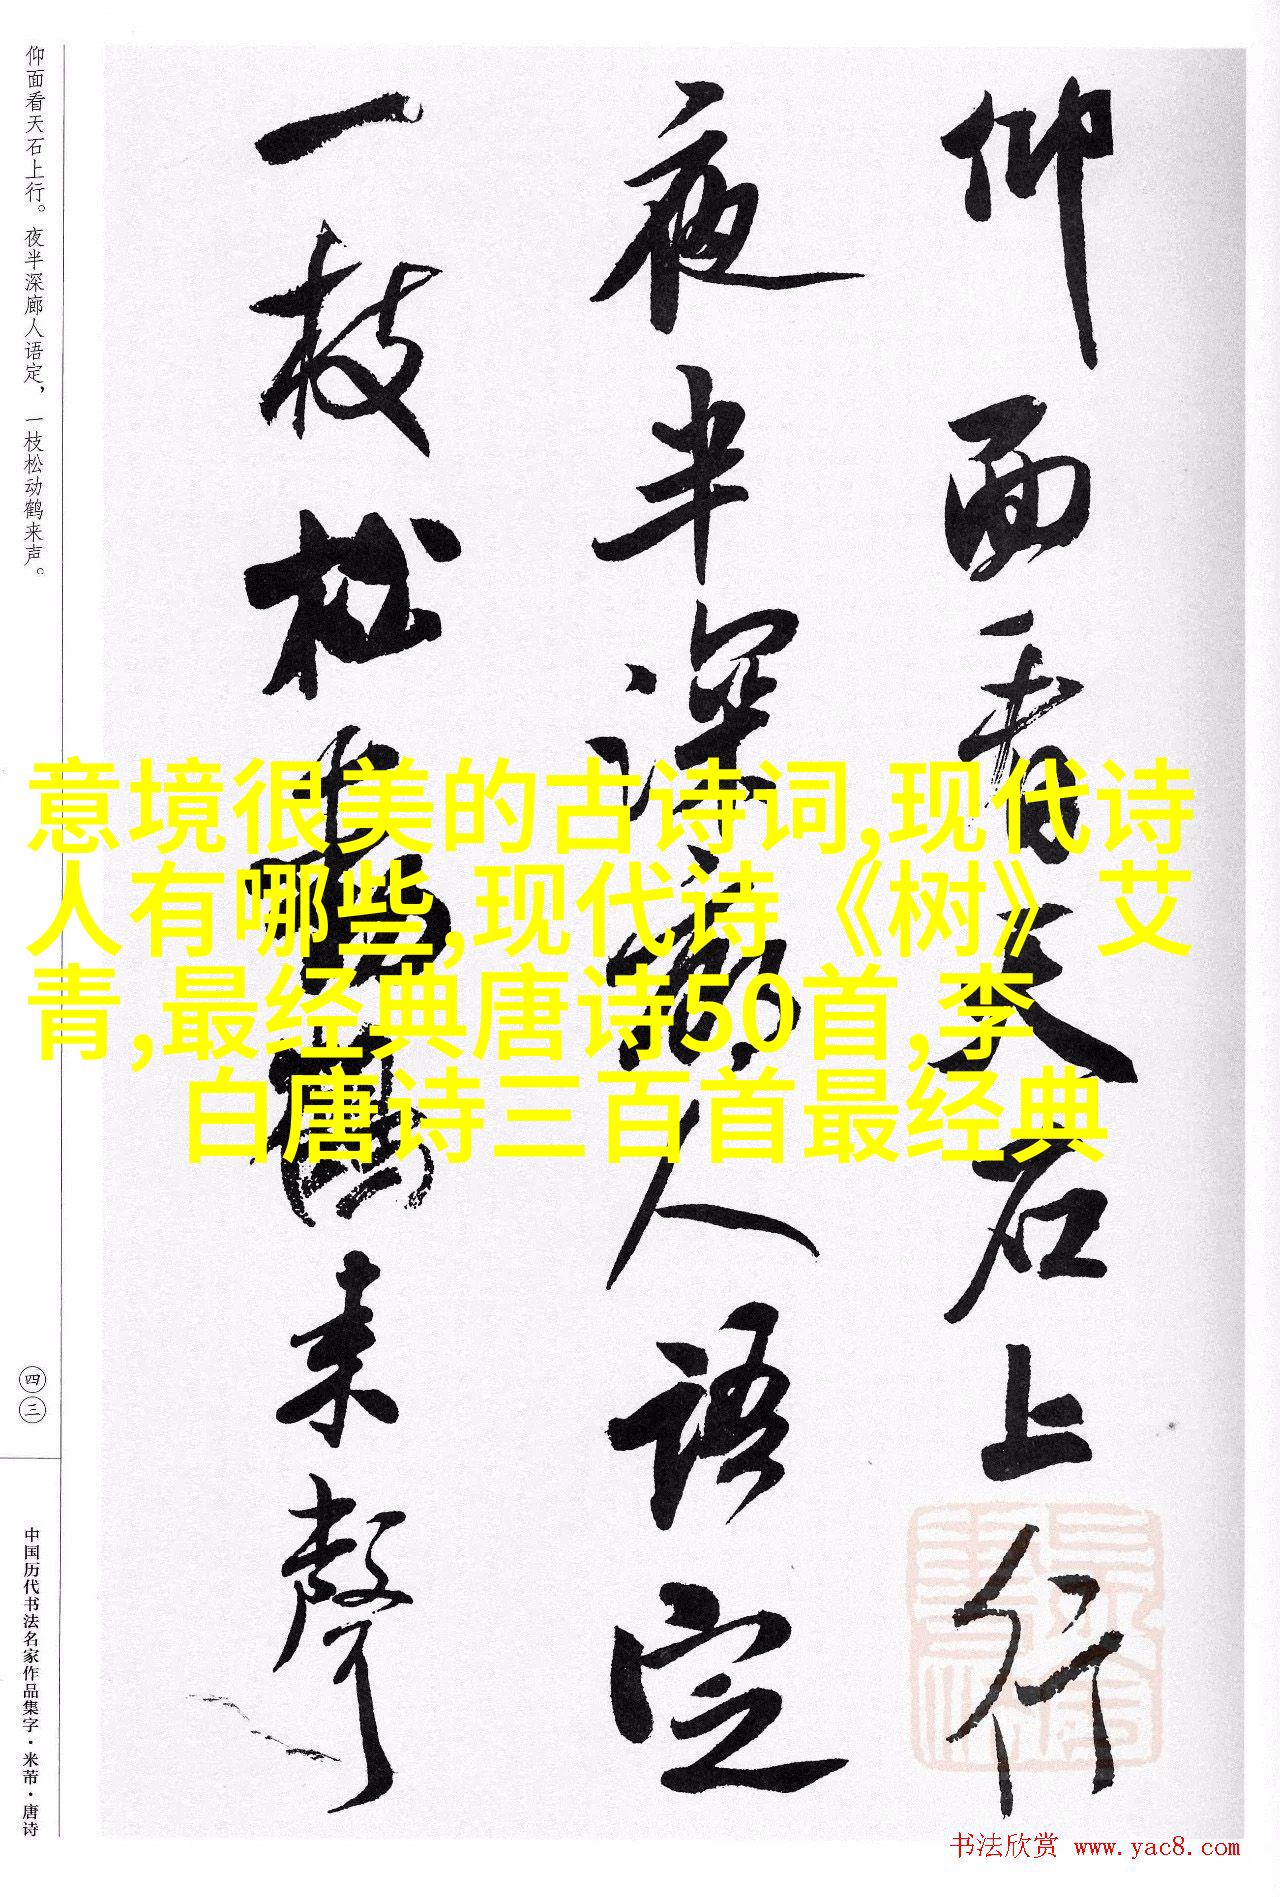 仰面看天石上行
夜半深廊人语定
一枝松动鹤来聲
仰面看天石上行。夜半深廊人语定，一枝松动鹤来声。
四三
中国历代书法名家作品集字·米芾·唐诗
意境很美的古诗词,现代诗
人有哪些,现代诗《树》艾
青,最经典唐诗50首,李
白唐诗三百首最经典
书法欣赏 www.yac8.com